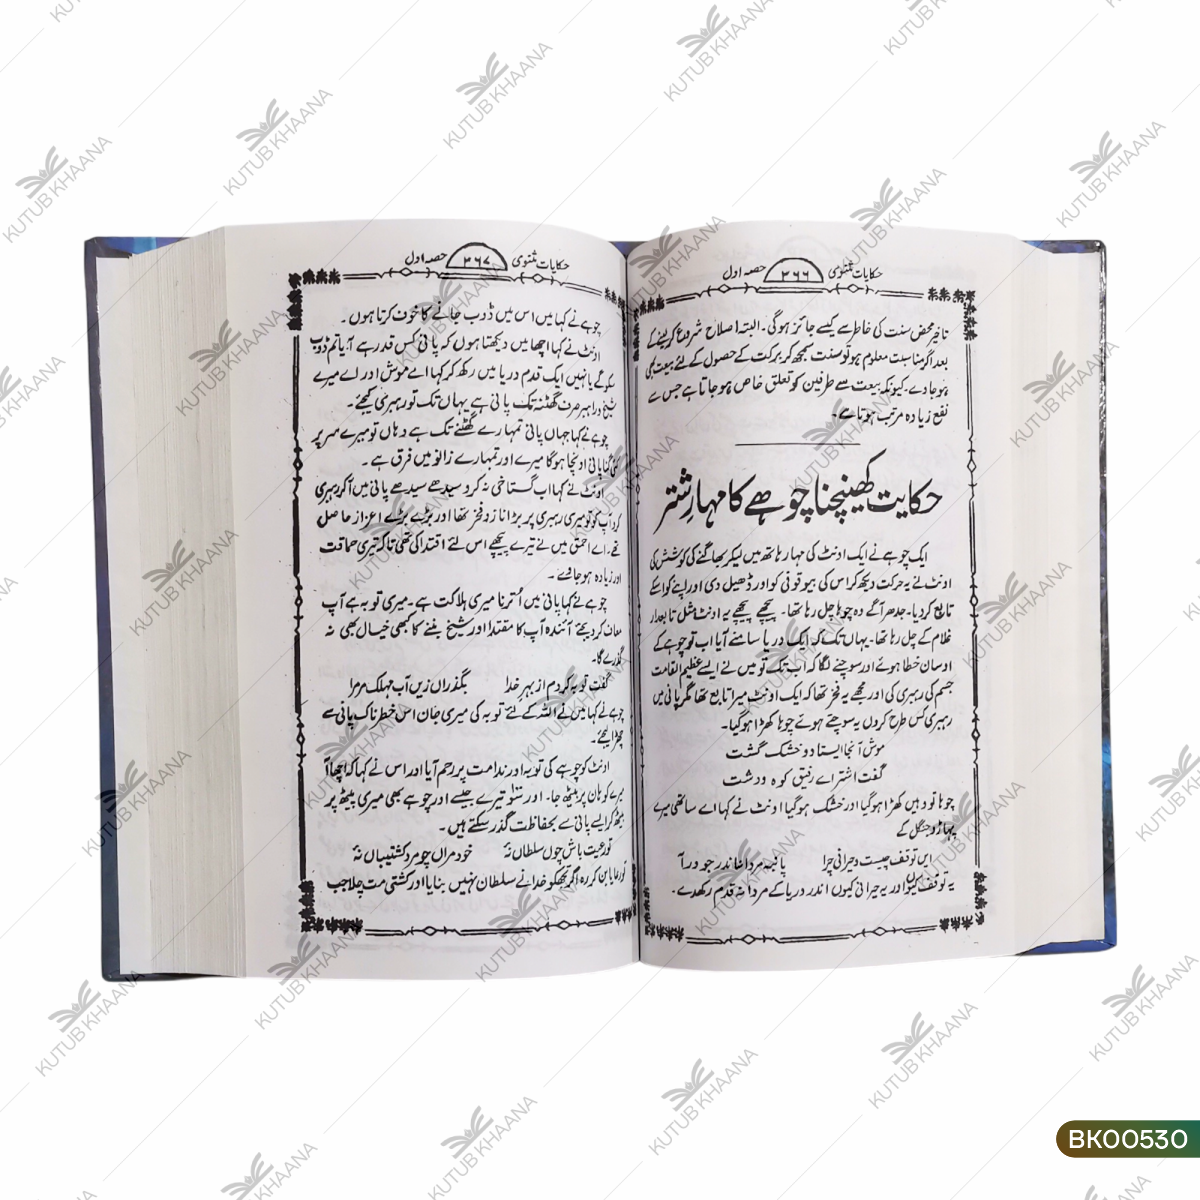 حکایات مثنوی ۳۶۶ حصہ اول
تاخیر محض سنت کی خاطر سے کیسے جائز ہوگی۔ البتہ اصلاح شروع کرنے کے
بعد اگر مناسبت معلوم ہو تو سنت سمجھ کر برکت کے حصول کے لئے بیعت بھی
ہو جاوے۔ کیونکہ بیعت سے طرفین کو تعلق خاص ہو جاتا ہے جس سے
نفع زیادہ مرتب ہوتا ہے۔
حکایت کھینچنا چوہے کا مہارِ شتر
ایک چوہے نے ایک اونٹ کی مہار ہاتھ میں لیکر بھاگنے کی کوشش کی
اونٹ نے یہ حرکت دیکھ کر اس کی بیوقوفی کو اور ڈھیل دی اور اپنے کو اسکے
تابع کر دیا۔ جدھر آگے وہ چوہا چل رہا تھا۔ پیچھے پیچھے یہ اونٹ مثل تابعدار
غلام کے چل رہا تھا۔ یہاں تک کہ ایک دریا سامنے آیا اب تو چوہے کے
اوسان خطا ہوئے اور سوچنے لگا کہ اب تک تو میں نے ایسے عظیم القامت
جسم کی رہبری کی اور مجھے یہ فخر تھا کہ ایک اونٹ میرا تابع تھا مگر پانی میں
رہبری کس طرح کروں یہ سوچتے ہوئے چوہا کھڑا ہوگیا۔
موش آنجا ایستاد و خشک گشت
گفت اشتر اے رفیق کوہ و دشت
چوہا تو وہیں کھڑا ہوگیا اور خشک ہوگیا اونٹ نے کہا اے ساتھی میرے
پہاڑ و جنگل کے
ایں توقف چیست و حیرانی چرا پا بنہ مردانہ اندر جو در آ
یہ توقف کیوں اور یہ حیرانی کیوں اندر دریا کے مردانہ قدم رکھدے۔
حکایات مثنوی ۳۶۷ حصہ اول
چوہے نے کہا میں اس میں ڈوب جانے کا خوف کرتا ہوں۔
اونٹ نے کہا اچھا میں دیکھتا ہوں کہ پانی کس قدر ہے آیا تم ڈوب
سکو گے یا نہیں ایک قدم دریا میں رکھ کر کہا اے موش اور اے میرے
شیخ و راہبر صرف گھٹنہ تک پانی ہے یہاں تک تو رہبری کیجئے۔
چوہے نے کہا جہاں پانی تمہارے گھٹنے تک ہے وہاں تو میرے سر پر
کئی گنا پانی اونچا ہوگا میرے اور تمہارے زانو میں فرق ہے۔
اونٹ نے کہا اب گستاخی نہ کرو سیدھے سیدھے پانی میں آکر رہبری
کرو آپ کو تو میری رہبری پر بڑا ناز و فخر تھا اور بڑے بڑے اعزاز حاصل
تھے۔ اے احمق میں نے تیرے پیچھے اس لئے اقتدا کی تھی تاکہ تیری حماقت
اور زیادہ ہو جاوے۔
چوہے نے کہا پانی میں اُترنا میری ہلاکت ہے۔ میری توبہ ہے آپ
معاف کر دیجئے آئندہ آپ کا مقتدا اور شیخ بننے کا کبھی خیال بھی نہ
گذرے گا۔
گفت توبہ کردم از بہر خدا بگذراں زیں آب مہلک مر مرا
چوہے نے کہا میں نے اللہ کے لئے توبہ کی میری جان اس خطرناک پانی سے
چھڑا لیجئے۔
اونٹ کو چوہے کی توبہ اور ندامت پر رحم آیا اور اس نے کہا کہ اچھا آ
میرے کوہان پر بیٹھ جا۔ اور تنٹو تیرے جیسے اور چوہے بھی میری پیٹھ پر
بیٹھ کر ایسے پانی سے بحفاظت گذر سکتے ہیں۔
تو رعیت باش چوں سلطاں نہٗ خود مراں چو مرد کشتیباں نہٗ
تو رعایا بن کر رہ اگر تجھکو خدا نے سلطان نہیں بنایا اور کشتی مت چلا جب
KUTUB KHAANA
BK00530